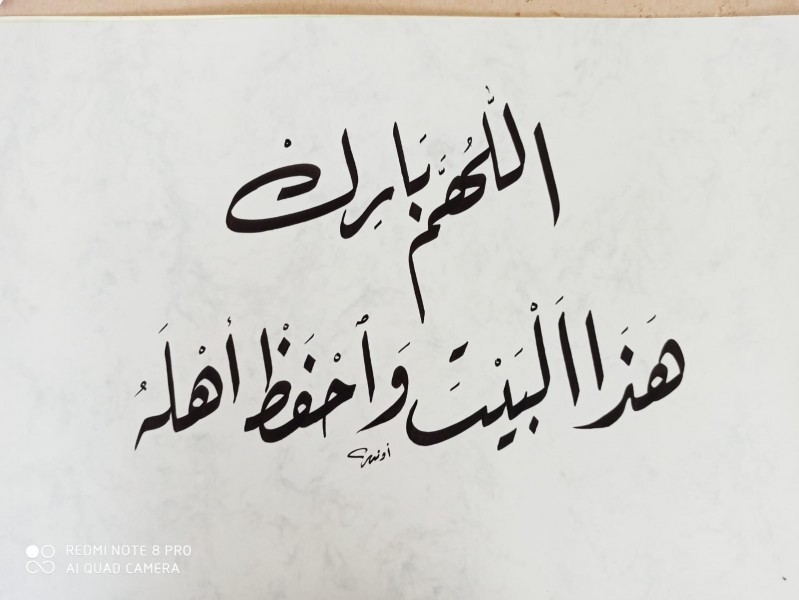 اللّٰهُمَّ بَارِكْ
هَذَا اَلْبَيْتَ وَٱحْفَظْ أهْلَهُ
REDMI NOTE 8 PRO
AI QUAD CAMERA